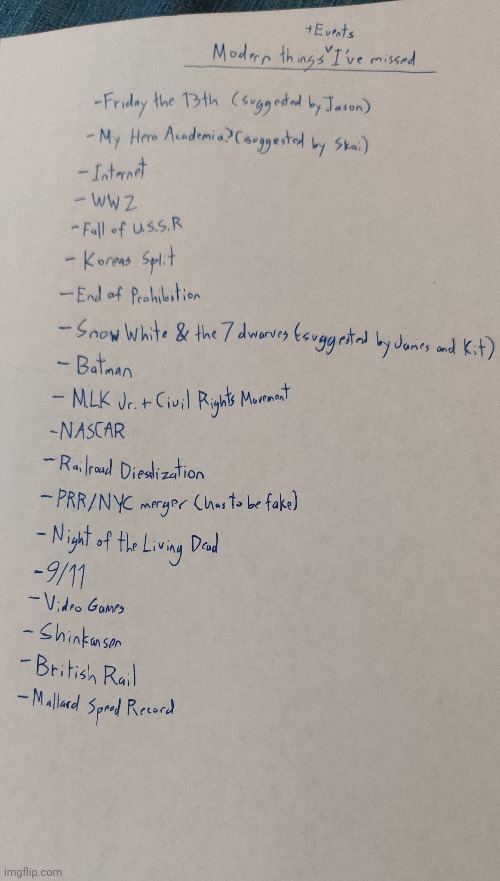 +Events
Modern things ˅ I've missed
-Friday the 13th (suggested by Jason)
-My Hero Academia? (suggested by Skai)
-Internet
-WW2
-Fall of U.S.S.R
-Koreas Split
-End of Prohibition
-Snow White & the 7 dwarves (suggested by James and Kit)
-Batman
-MLK Jr. + Civil Rights Movement
-NASCAR
-Railroad Dieselization
-PRR/NYC merger (has to be fake)
-Night of the Living Dead
-9/11
-Video Games
-Shinkansen
-British Rail
-Mallard Speed Record
imgflip.com